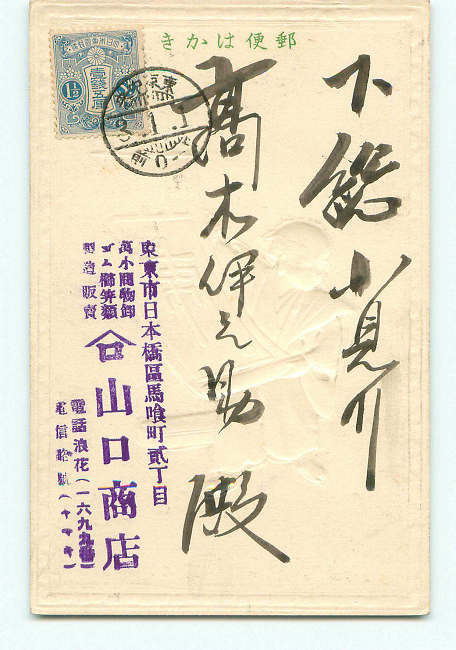 郵便はかき
下総小見川
高木伊之助殿
東京市日本橋區馬喰町貳丁目
萬小間物卸
ゴム櫛笄類
製造販賣
山口商店
電話浪花(一六九九番)
電信略號(ヤマキ)
壹錢五厘
1½